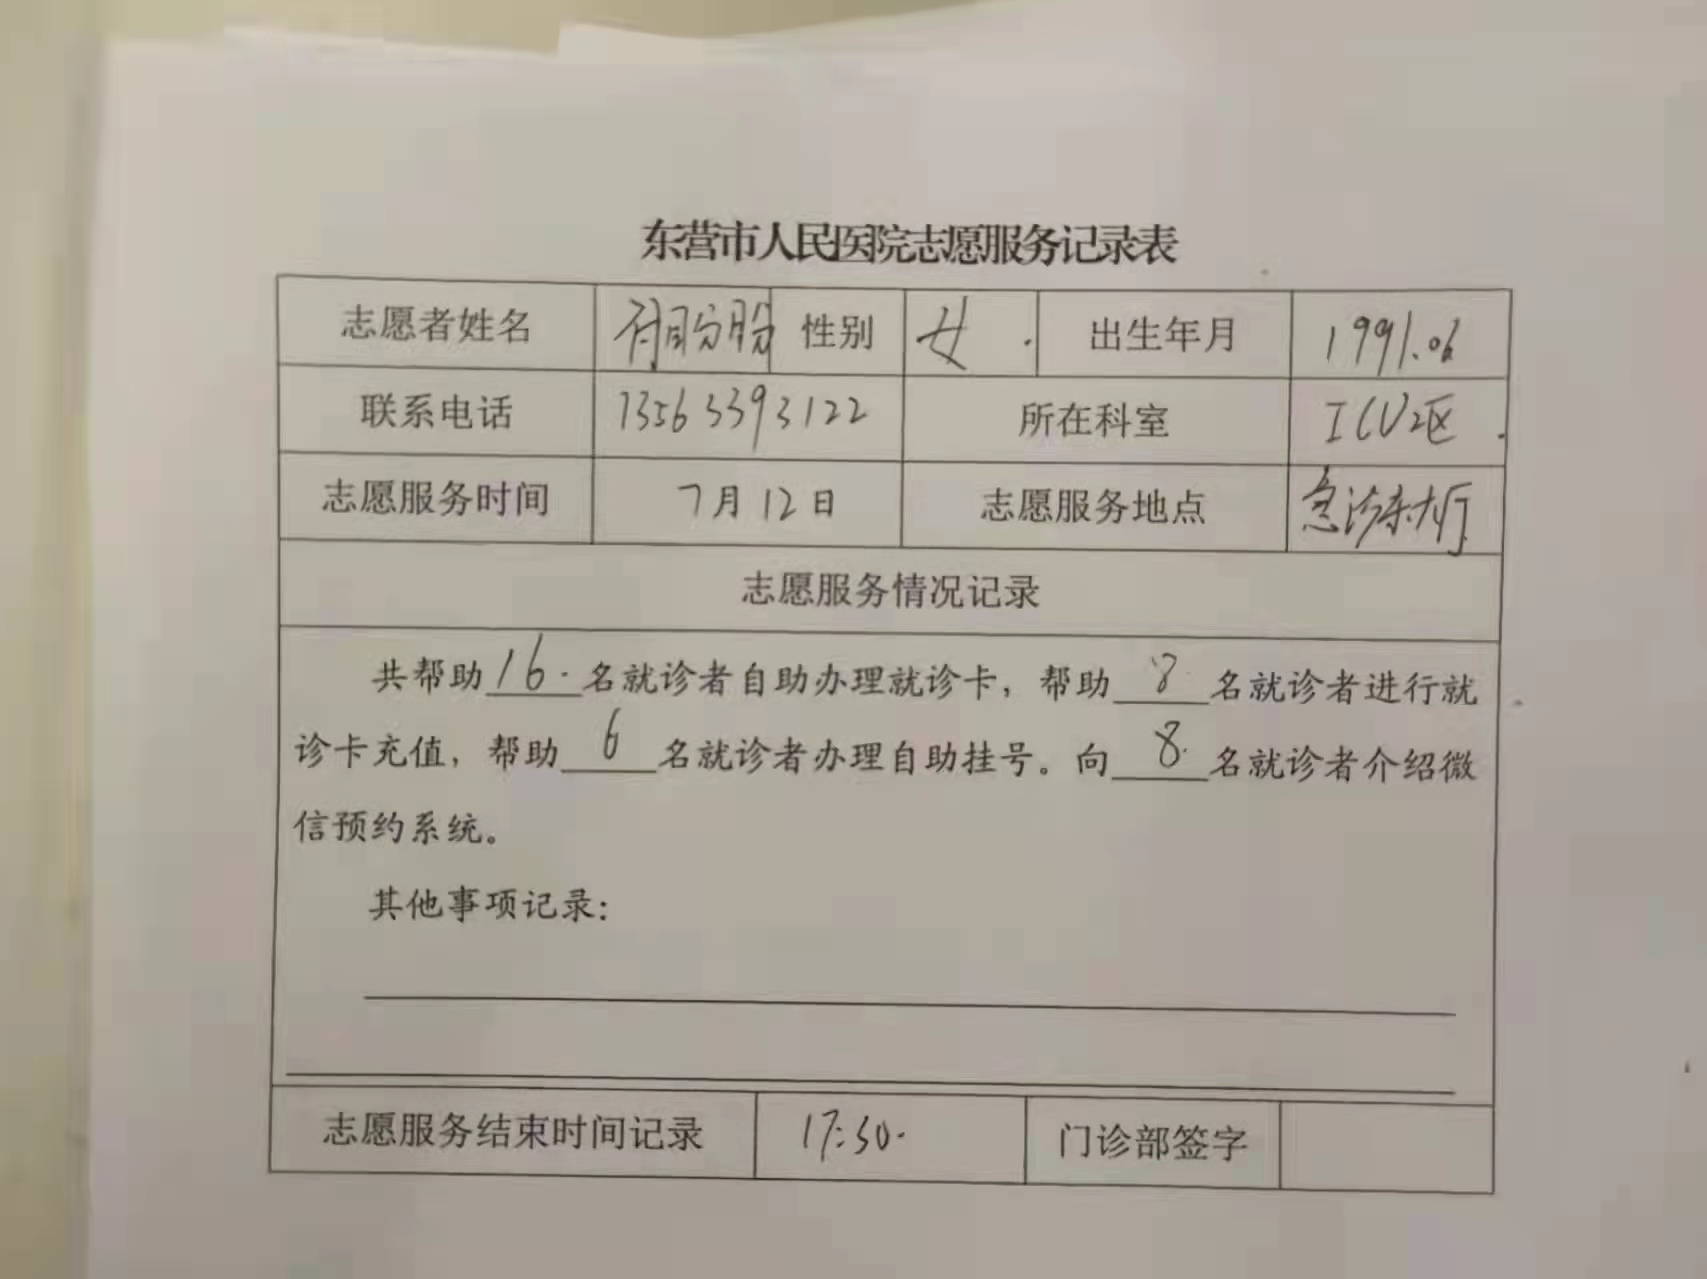 东营市人民医院志愿服务记录表
志愿者姓名 性别 女 出生年月 1991.06
联系电话 13563393122 所在科室 ICU2区
志愿服务时间 7月12日 志愿服务地点 急诊大厅
志愿服务情况记录
共帮助16.名就诊者自助办理就诊卡，帮助8名就诊者进行就
诊卡充值，帮助6名就诊者办理自助挂号。向8名就诊者介绍微
信预约系统。
其他事项记录：
志愿服务结束时间记录 17:30. 门诊部签字